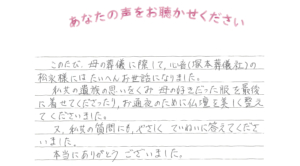 あなたの声をお聴かせください
このたび、母の葬儀に際して、心音(塚本葬儀社)の
松永様にはたいへんお世話になりました。
私共の遺族の思いをくみ 母の好きだった服を最後
に着せてくださったり、お通夜のために仏壇を美しく整え
てくださいました。
又、私共の質問にも、やさしく ていねいに答えてくださ
いました。
本当にありがとう ございました。